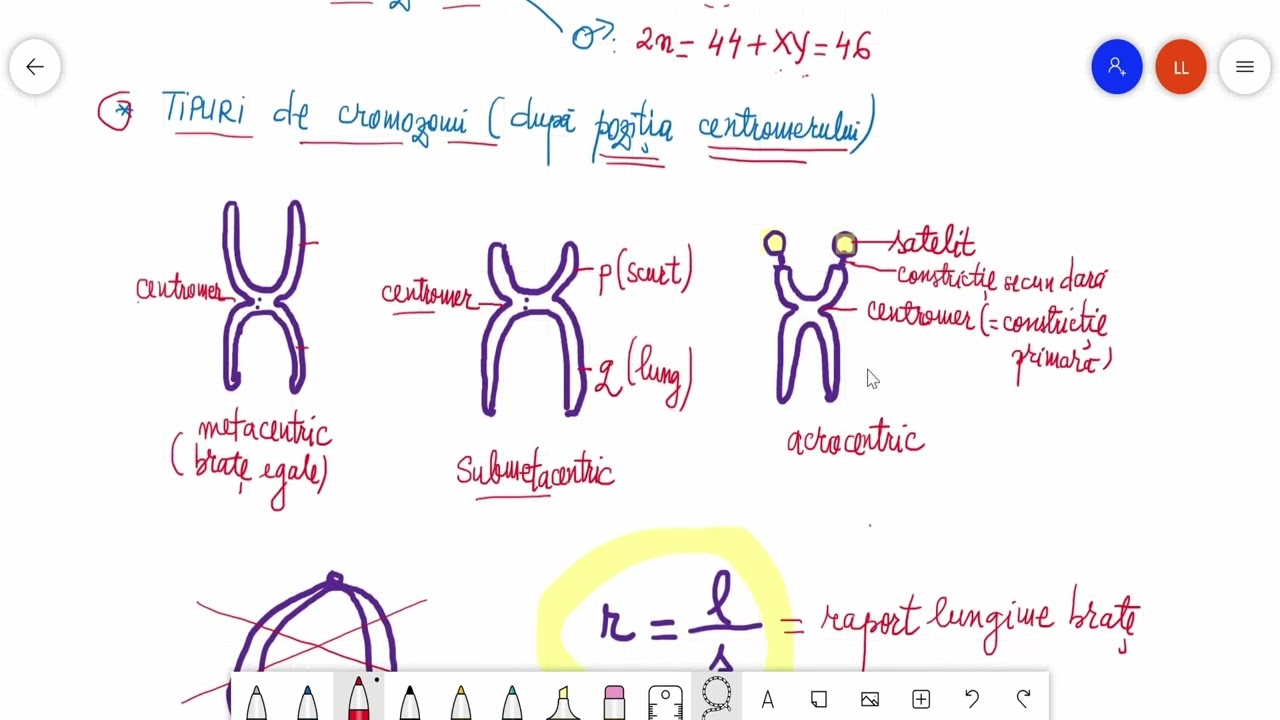 ♂: 2n = 44 + XY = 46
* TIPURI de cromozomi (după poziția centromerului)
LL
centromer
metacentric
(brațe egale)
centromer
p (scurt)
q (lung)
submetacentric
satelit
constricție secundară
centromer (= constricție
primară)
acrocentric
r = l/s = raport lungime brațe
A